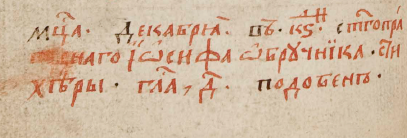 мц҃а. декабрꙗ. въ. к҃ѕ. дн҃ь ст҃гопра
веднаго іѡсифа ѡбрꙋчника. сти
хѣры. гла, д҃. подобенъ.